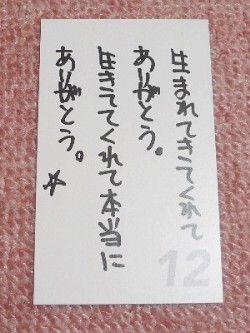 生まれてきてくれて
ありがとう。
生きててくれて本当に
ありがとう。☆
12